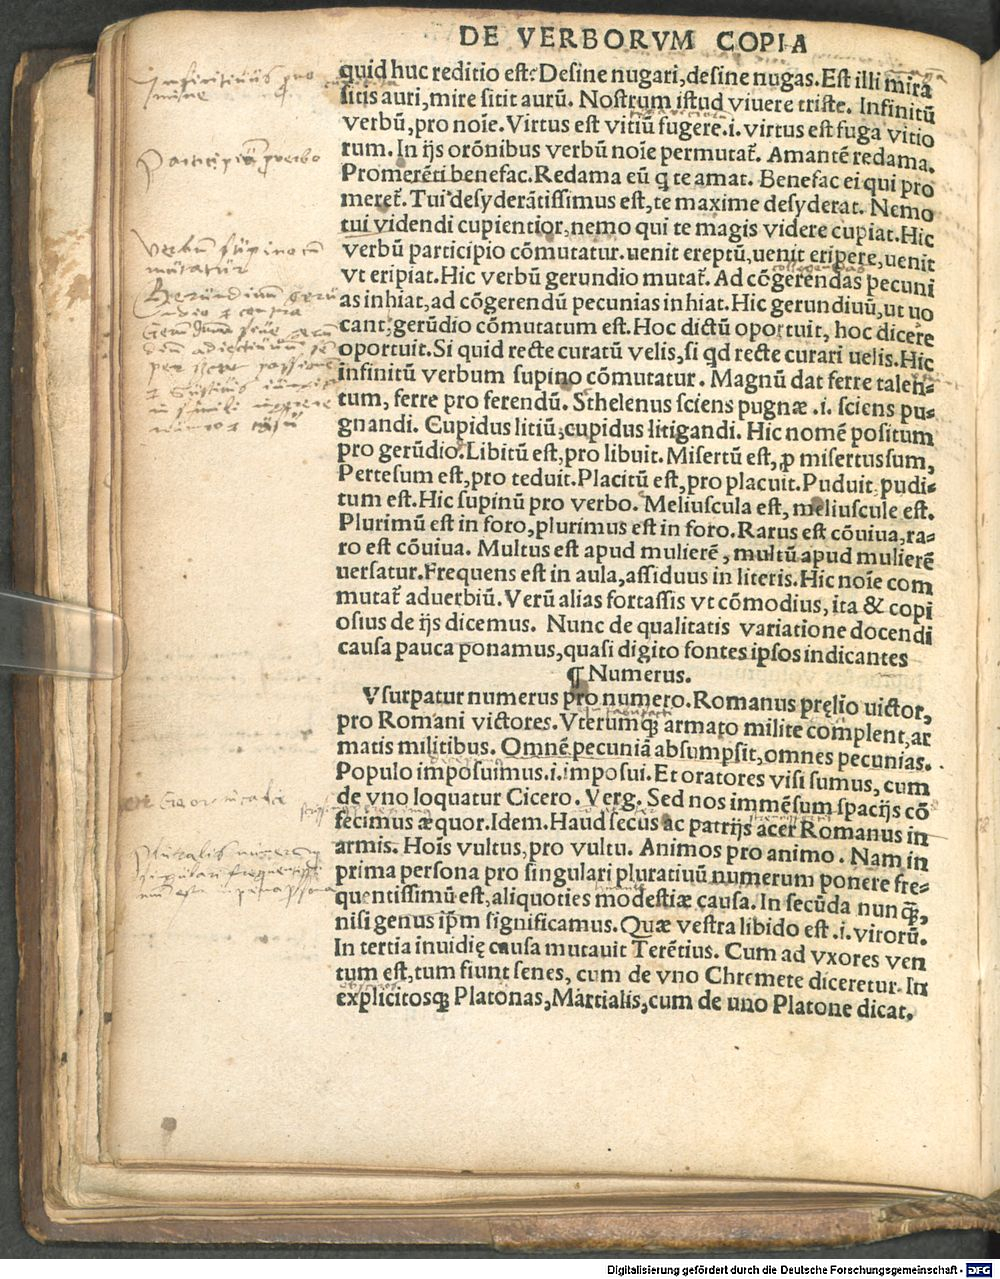 DE VERBORVM COPIA
quid huc reditio est? Desine nugari, desine nugas. Est illi mira
sitis auri, mire sitit aurū. Nostrum istud viuere triste. Infinitū
verbū, pro noīe. Virtus est vitiū fugere .i. virtus est fuga vitio
rum. In ijs orōnibus verbū noīe permutat̄. Amantē redama.
Promerēti benefac. Redama eū q te amat. Benefac ei qui pro
meret̄. Tui desyderātissimus est, te maxime desyderat. Nemo
tui videndi cupientior, nemo qui te magis videre cupiat. Hic
verbū participio cōmutatur. uenit ereptū, uenit eripere, uenit
vt eripiat. Hic verbū gerundio mutat̄. Ad cōgerendas pecuni
as inhiat, ad cōgerendū pecunias inhiat. Hic gerundiuū, ut uo
cant, gerūdio cōmutatum est. Hoc dictū oportuit, hoc dicere
oportuit. Si quid recte curatū velis, si qd recte curari uelis. Hic
infinitū verbum supino cōmutatur. Magnū dat ferre talen⸗
tum, ferre pro ferendū. Sthelenus sciens pugnæ .i. sciens pu⸗
gnandi. Cupidus litiū, cupidus litigandi. Hic nomē positum
pro gerūdio. Libitū est, pro libuit. Misertū est, ꝓ misertus sum,
Pertesum est, pro teduit. Placitū est, pro placuit. Puduit, pudi⸗
tum est. Hic supinū pro verbo. Meliuscula est, meliuscule est.
Plurimū est in foro, plurimus est in foro. Rarus est cōuiua, ra⸗
ro est cōuiua. Multus est apud mulierē, multū apud mulierē
uersatur. Frequens est in aula, assiduus in literis. Hic noīe com
mutat̄ aduerbiū. Verū alias fortassis vt cōmodius, ita & copi
osius de ijs dicemus. Nunc de qualitatis variatione docendi
causa pauca ponamus, quasi digito fontes ipsos indicantes
¶ Numerus.
Vsurpatur numerus pro numero. Romanus pręlio uictor,
pro Romani victores. Vterumqꝫ armato milite complent, ar
matis militibus. Omnē pecuniā absumpsit, omnes pecunias.
Populo imposuimus .i. imposui. Et oratores visi sumus, cum
de vno loquatur Cicero. Verg. Sed nos immēsum spacijs cō
fecimus æquor. Idem. Haud secus ac patrijs acer Romanus in
armis. Hoīs vultus, pro vultu. Animos pro animo. Nam in
prima persona pro singulari pluratiuū numerum ponere fre⸗
quentissimū est, aliquoties modestiæ causa. In secūda nunqꝫ̄,
nisi genus ip̄m significamus. Quæ vestra libido est .i. virorū.
In tertia inuidię causa mutauit Terētius. Cum ad vxores ven
tum est, tum fiunt senes, cum de vno Chremete diceretur. In
explicitosqꝫ Platonas, Martialis, cum de uno Platone dicat,
Digitalisierung gefördert durch die Deutsche Forschungsgemeinschaft - DFG